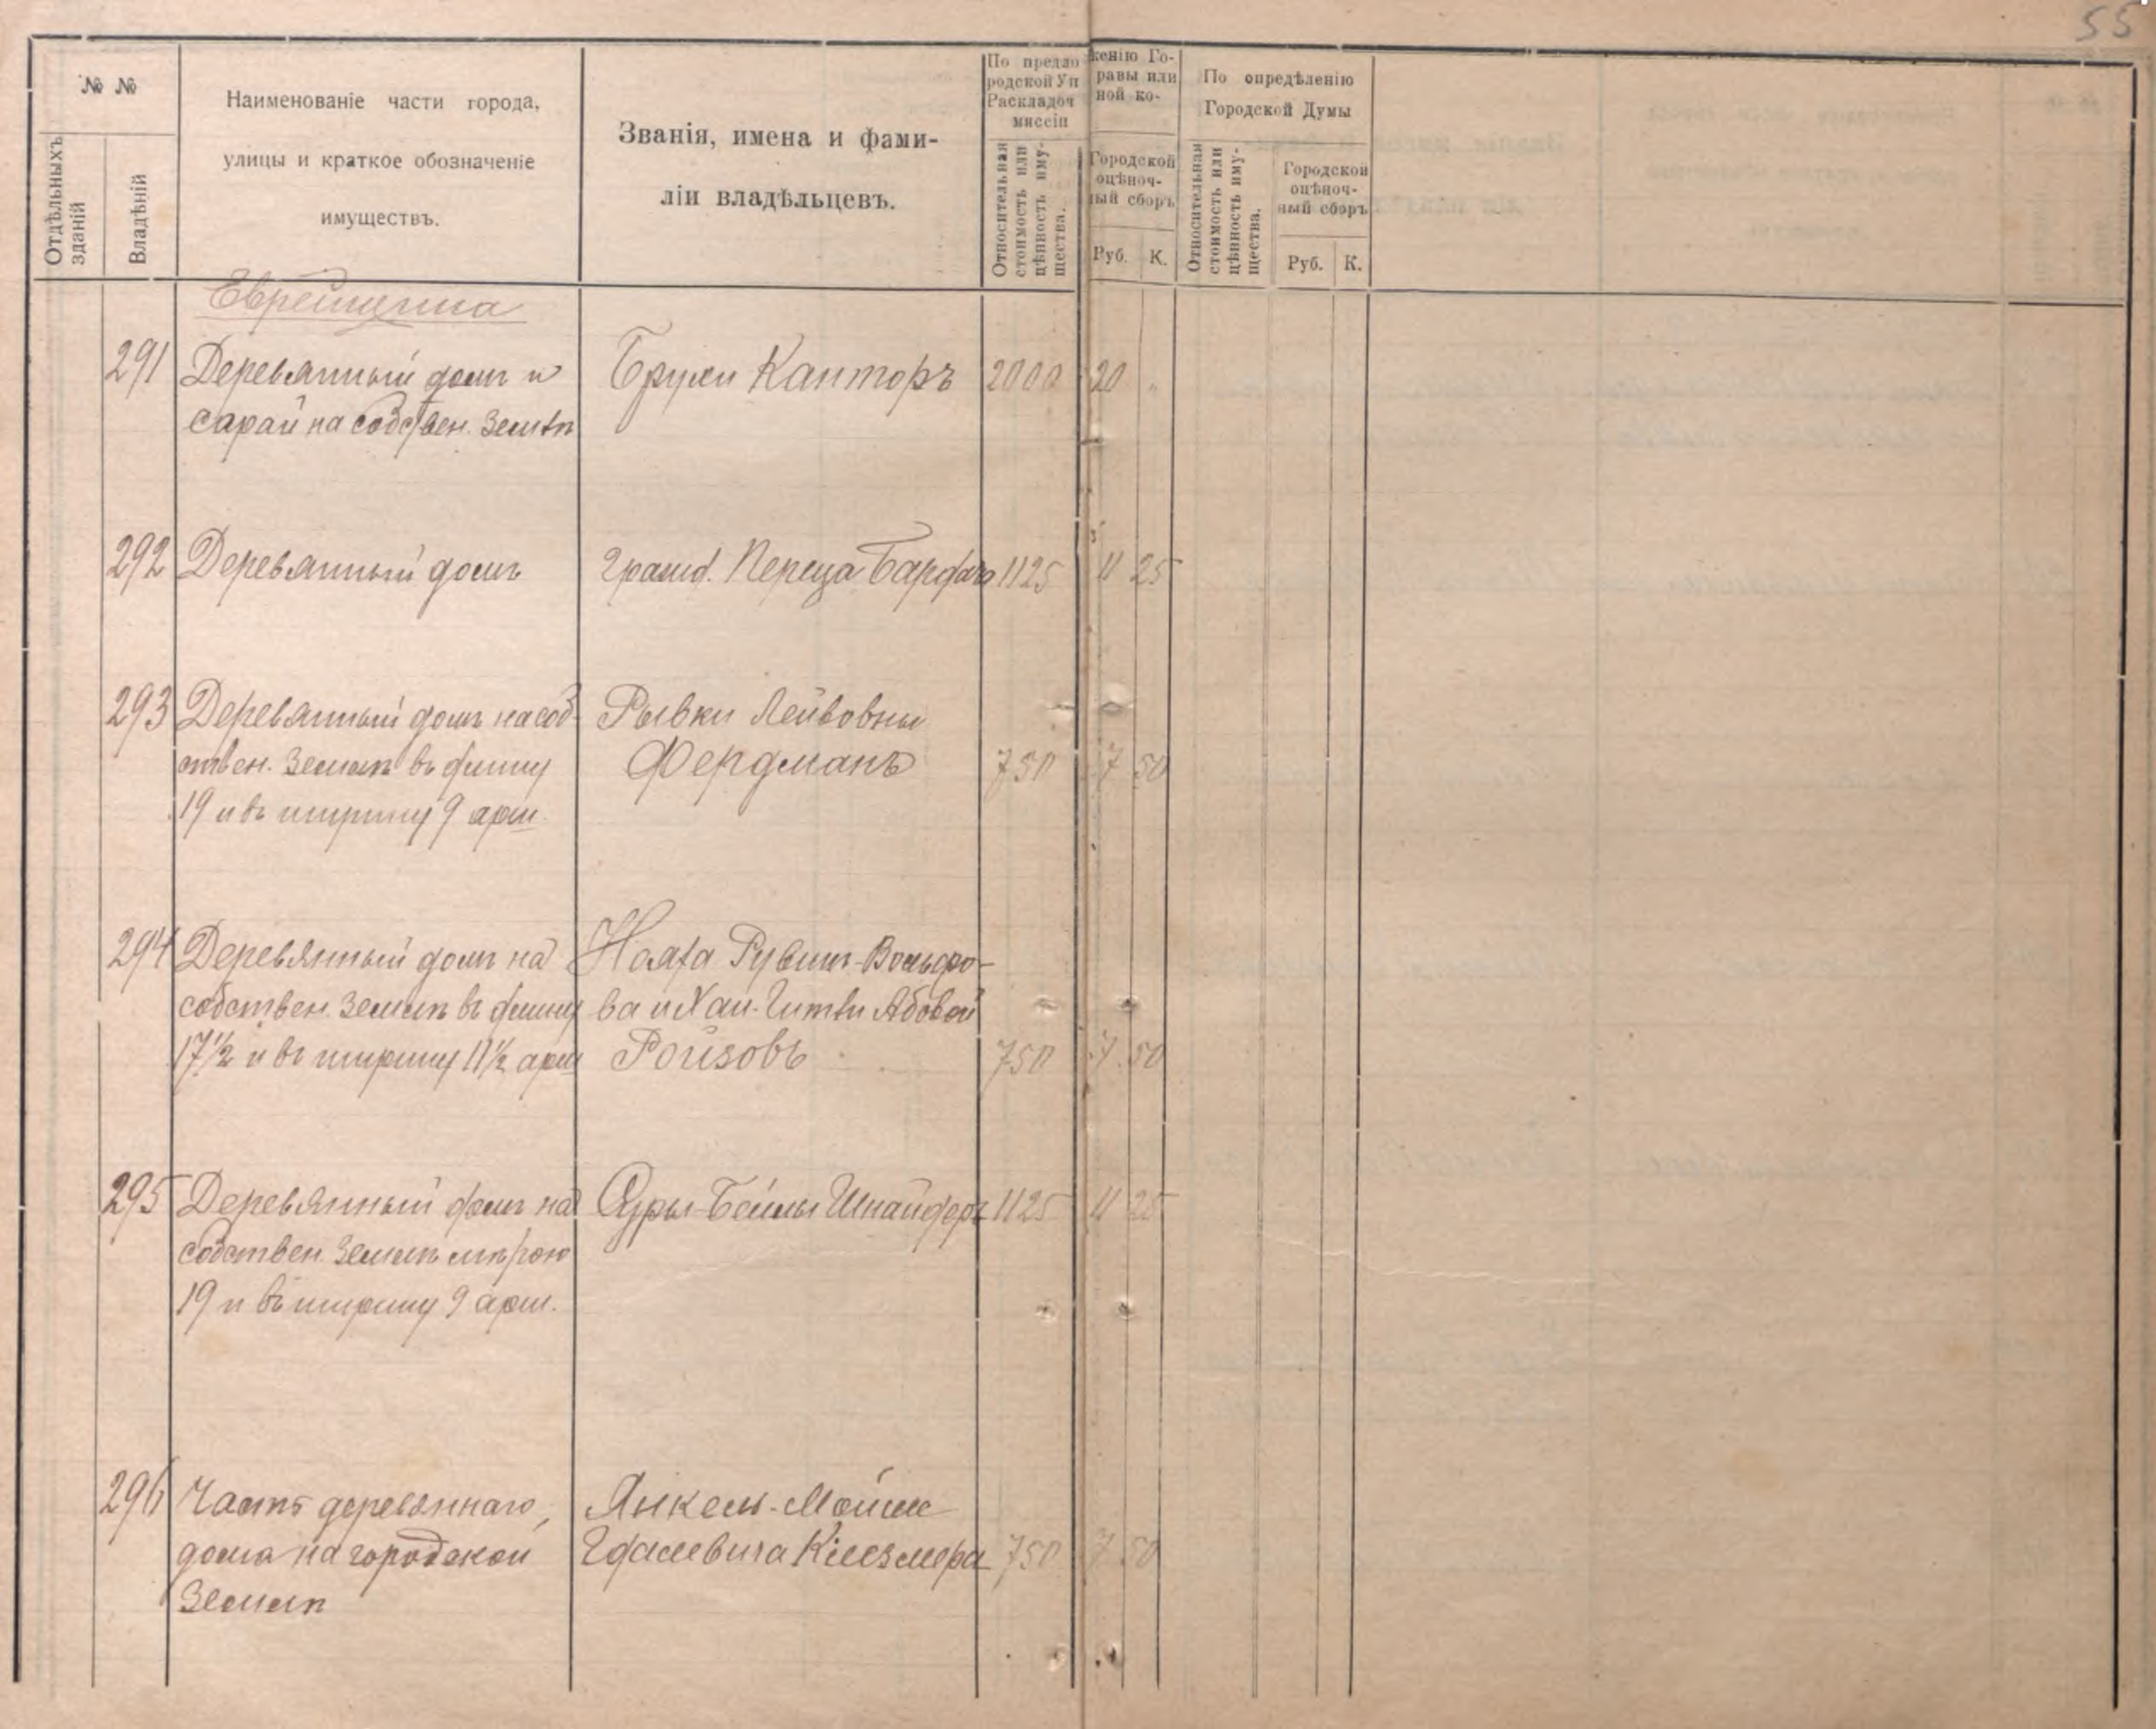 55
№ №
Отдѣльныхъ зданій
Владѣній
Наименованіе части города,
улицы и краткое обозначеніе
имуществъ.
Званія, имена и фами-
ліи владѣльцевъ.
По предложенію Го-
родской Управы или
Раскладочной ко-
миссіи
Относительная стоимость или цѣнность иму- щества.
Городской
оцѣноч-
ный сборъ
Руб. К.
По опредѣленію
Городской Думы
Относительная стоимость или цѣнность иму- щества.
Городской
оцѣноч-
ный сборъ
Руб. К.
291 Деревянный домъ и Брухи Канторъ 2000 20 "
сарай на собствен. землѣ
292 Деревянный домъ Переца 1125 11 25
293 Деревянный домъ на соб- Рывки Лейбовны
ствен. землѣ въ длину Фердманъ 750 7 50
19 и въ ширину 9 арш.
294 Деревянный домъ на Рувинъ-Вольфо-
собствен. землѣ въ длину ва и Хаи-Гитли Абовой
17½ и въ ширину 11½ арш Ройзовъ 750 7 50
295 Деревянный домъ на Суры-Бейлы Шнайдеръ 1125 11 25
собствен. землѣ мѣрою
19 и въ ширину 9 арш.
296 Часть деревяннаго Янкель-Мойше
дома на городской Клезмера 750 7 50
землѣ